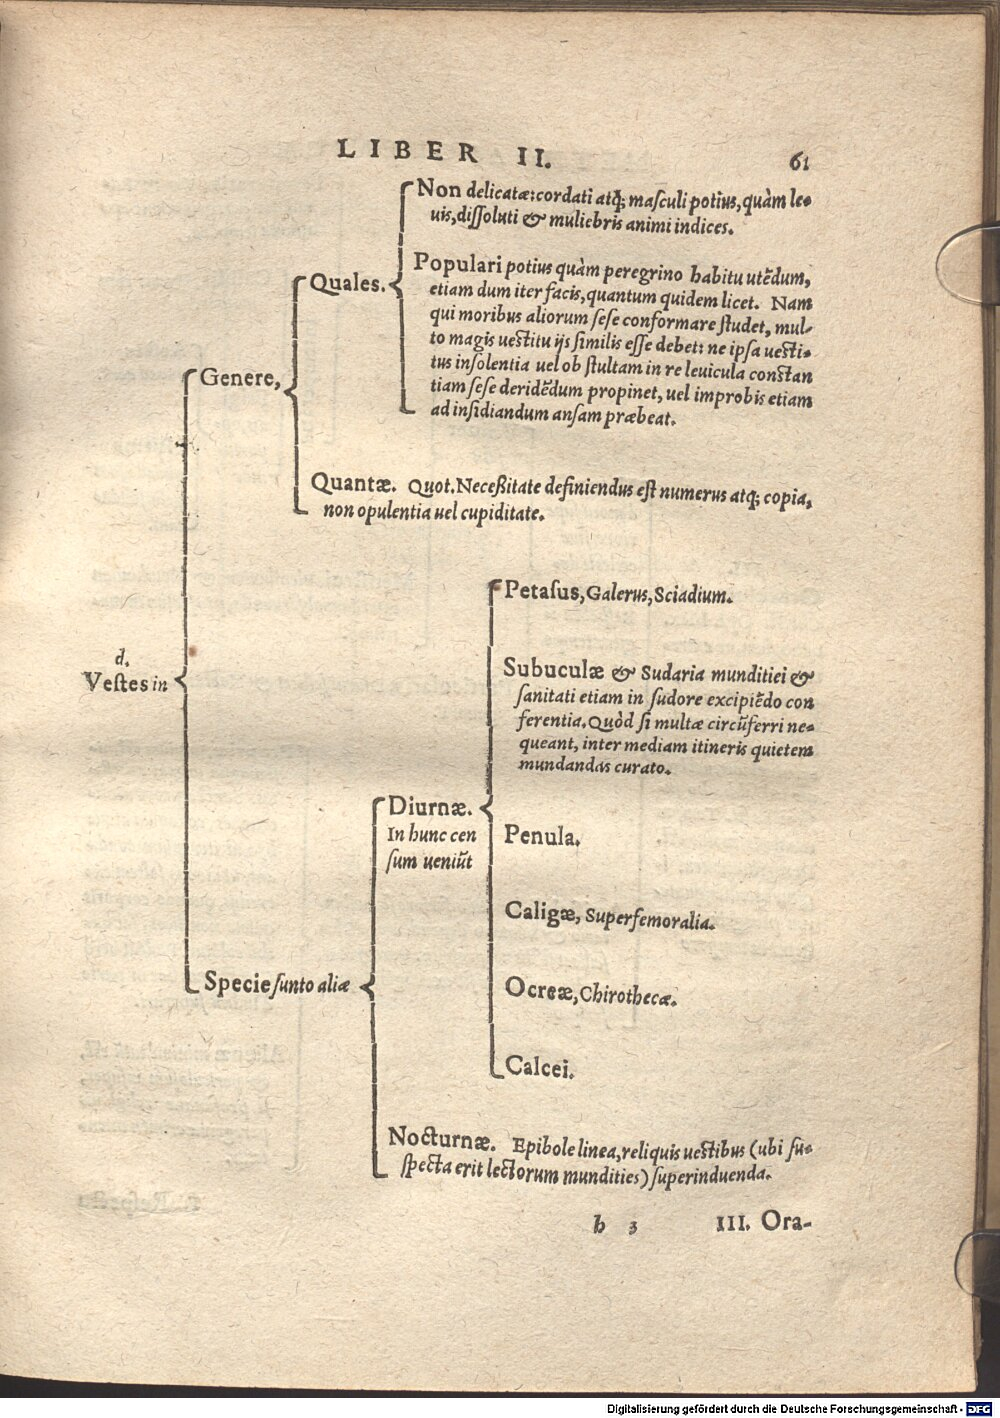 LIBER II. 61
Non delicatæ: cordati atq; maſculi potius, quàm le-
uis, diſſoluti & muliebris animi indices.
Quales.
Populari potius quàm peregrino habitu utẽdum,
etiam dum iter facis, quantum quidem licet. Nam
qui moribus aliorum ſeſe conformare ſtudet, mul-
to magis ueſtitu ijs ſimilis eſſe debet: ne ipſa ueſti-
tus inſolentia uel ob ſtultam in re leuicula conſtan
tiam ſeſe deridẽdum propinet, uel improbis etiam
ad inſidiandum anſam præbeat.
Genere,
Quantæ. Quot. Neceßitate definiendus eſt numerus atq; copia,
non opulentia uel cupiditate.
d.
Veſtes in
Petaſus, Galerus, Sciadium.
Subuculæ & Sudaria munditiei &
ſanitati etiam in ſudore excipiẽdo con
ferentia. Quòd ſi multæ circũferri ne-
queant, inter mediam itineris quietem
mundandas curato.
Diurnæ.
In hunc cen
ſum ueniũt
Penula.
Caligæ, Superfemoralia.
Specie ſunto aliæ
Ocreæ, Chirothecæ.
Calcei.
Nocturnæ. Epibole linea, reliquis ueſtibus (ubi ſu-
ſpecta erit lectorum mundities) ſuperinduenda.
h 3 III. Ora-
Digitalisierung gefördert durch die Deutsche Forschungsgemeinschaft - DFG